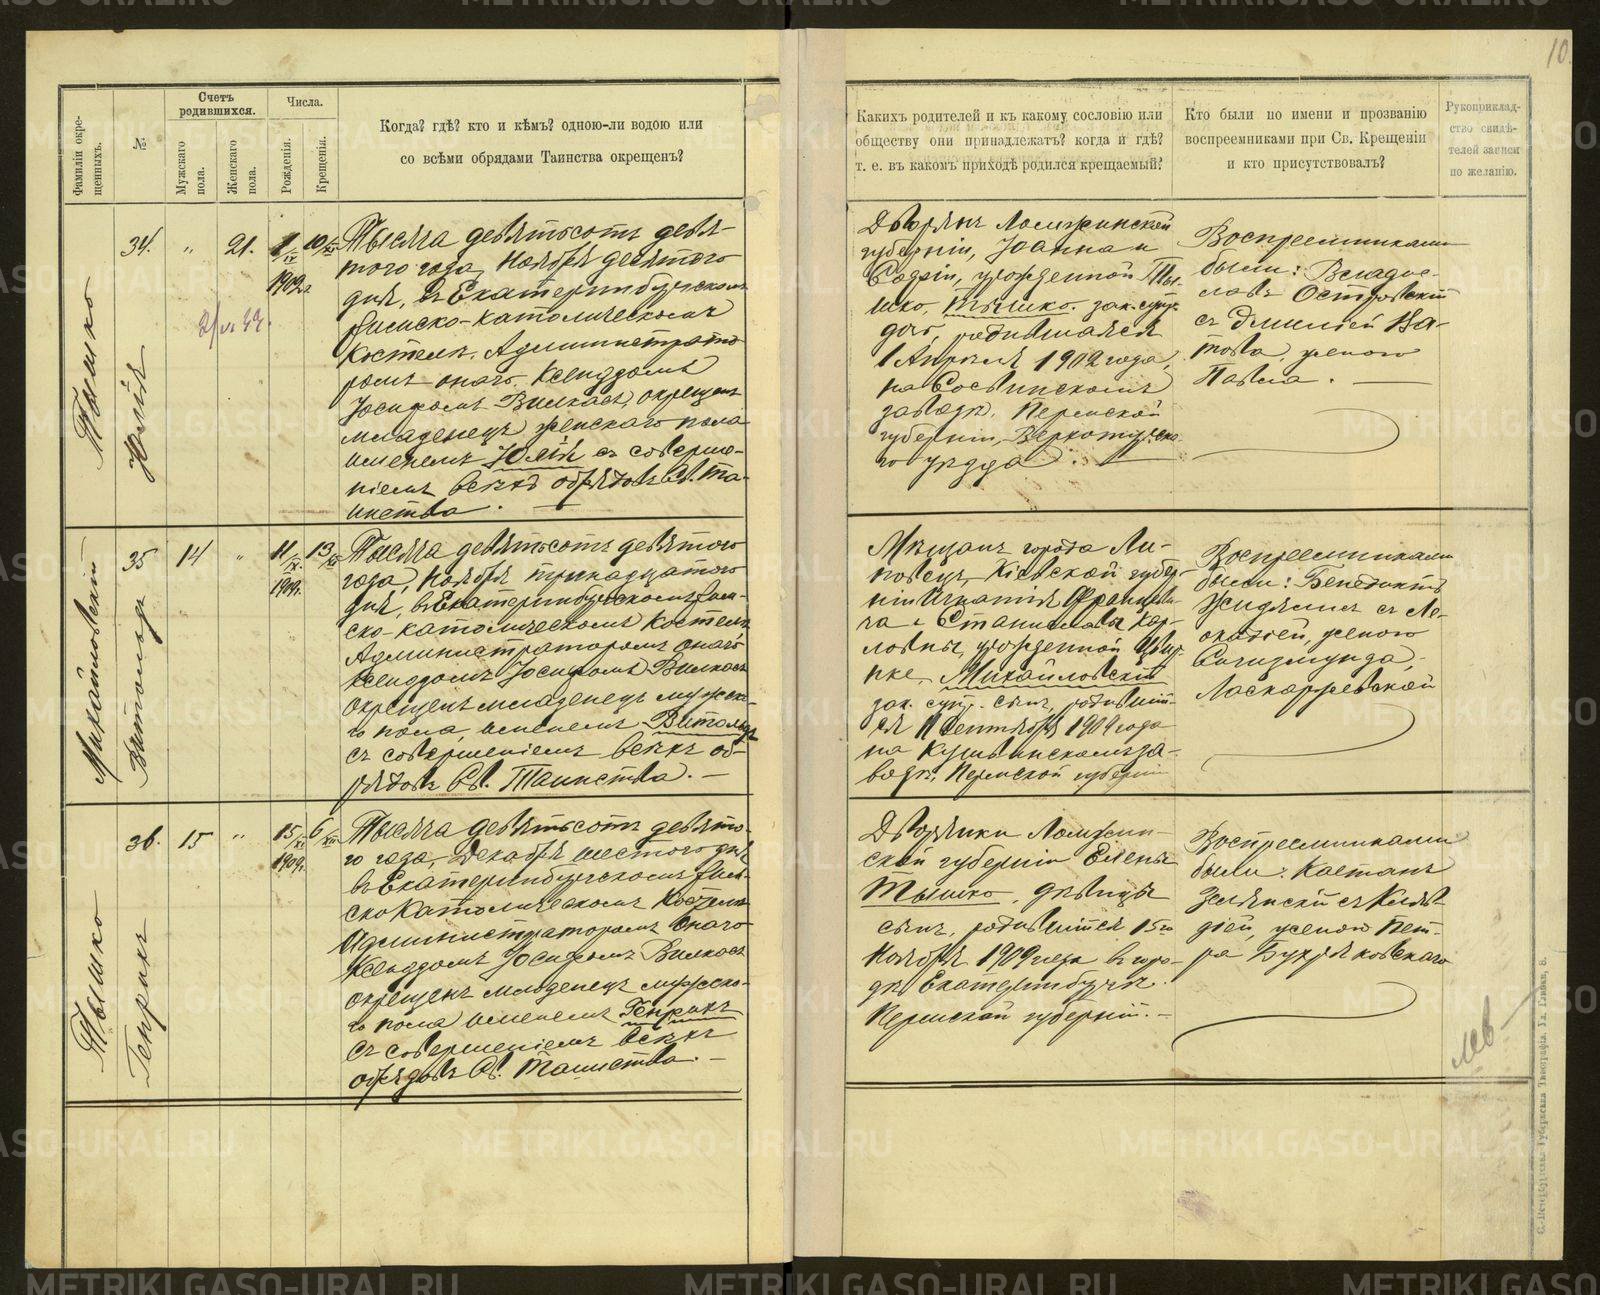 10.
Фамиліи окрещенныхъ.
№
Счетъ родившихся.
Мужскаго пола.
Женскаго пола.
Числа.
Рожденія.
Крещенія.
Когда? гдѣ? кто и кѣмъ? одною-ли водою или
со всѣми обрядами Таинства окрещенъ?
Какихъ родителей и къ какому сословію или
обществу они принадлежатъ? когда и гдѣ?
т. е. въ какомъ приходѣ родился крещаемый?
Кто были по имени и прозванію
воспреемниками при Св. Крещеніи
и кто присутствовалъ?
Рукоприклад-
ство свидѣ-
телей записи
по желанію.
Тышко
Юлія
34.
"
21.
10/XI
Тысяча девятьсотъ девя-
таго года, Ноября десятого
дня, въ Екатеринбургскомъ
Римско-католическомъ
Костелѣ, Администрато-
ромъ онаго Ксендзомъ
Іосифомъ Вилкасъ, окрещенъ
младенецъ женскаго пола
именемъ Юлія съ соверше-
ніемъ всѣхъ обрядовъ Св. Та-
инства.
Дворянъ Ломжинской
губерніи, Іоанна и
Софіи, урожденной Ты-
шко, Тышко зак. супр.
дочь, родившаяся
1 Апрѣля 1902 года,
на Сосвинскомъ
заводѣ, Пермской
губерніи, Верхотурска-
го уѣзда.
Воспреемниками
были: Владис-
лавъ Островскій
съ Эмиліей
женою
Павла.
Михайловскій
Витольдъ
35
14
"
11/IX
1909 г.
13/XI
Тысяча девятьсотъ девятого
года, Ноября тринадцатого
дня, въ Екатеринбургскомъ Рим-
ско-католическомъ Костелѣ,
Администраторомъ онаго
Ксендзомъ Іосифомъ Вилкасъ
окрещенъ младенецъ мужска-
го пола, именемъ Витольдъ
съ совершеніемъ всѣхъ об-
рядовъ Св. Таинства.
Мѣщанъ города Ли-
повецъ, Кіевской губер-
ніи Игнатія Францеви-
ча и Станиславы Кар-
ловны, урожденной
Михайловскій
зак. супр. сынъ, родившій-
ся 11 Сентября 1909 года
на Кушвинскомъ за-
водѣ, Пермской губерніи
Воспреемниками
были: Бенедиктъ
съ Ле-
окадіей, женою
Сигизмунда,
Ласкаржевской
Тышко
Генрихъ
36.
15
"
15/XI
1909 г.
6/XII
Тысяча девятьсотъ девято-
го года, Декабря шестого дня
въ Екатеринбургскомъ Рим-
ско Католическомъ Костелѣ
Администраторомъ онаго
Ксендзомъ Іосифомъ Вилкасъ
окрещенъ младенецъ мужско-
го пола именемъ Генрихъ
съ совершеніемъ всѣхъ
обрядовъ Св. Таинства.
Дворянки Ломжин-
ской губерніи Елены
Тышко, дѣвицы
сынъ, родившійся 15го
Ноября 1909 года въ горо-
дѣ Екатеринбургѣ.
Пермской губерніи.
Воспреемниками
были: Каетанъ
Зелинскій съ Клав-
діей, женою Пет-
ра
С.-Петербургская Губернская Типографія
METRIKI.GASO-URAL.RU